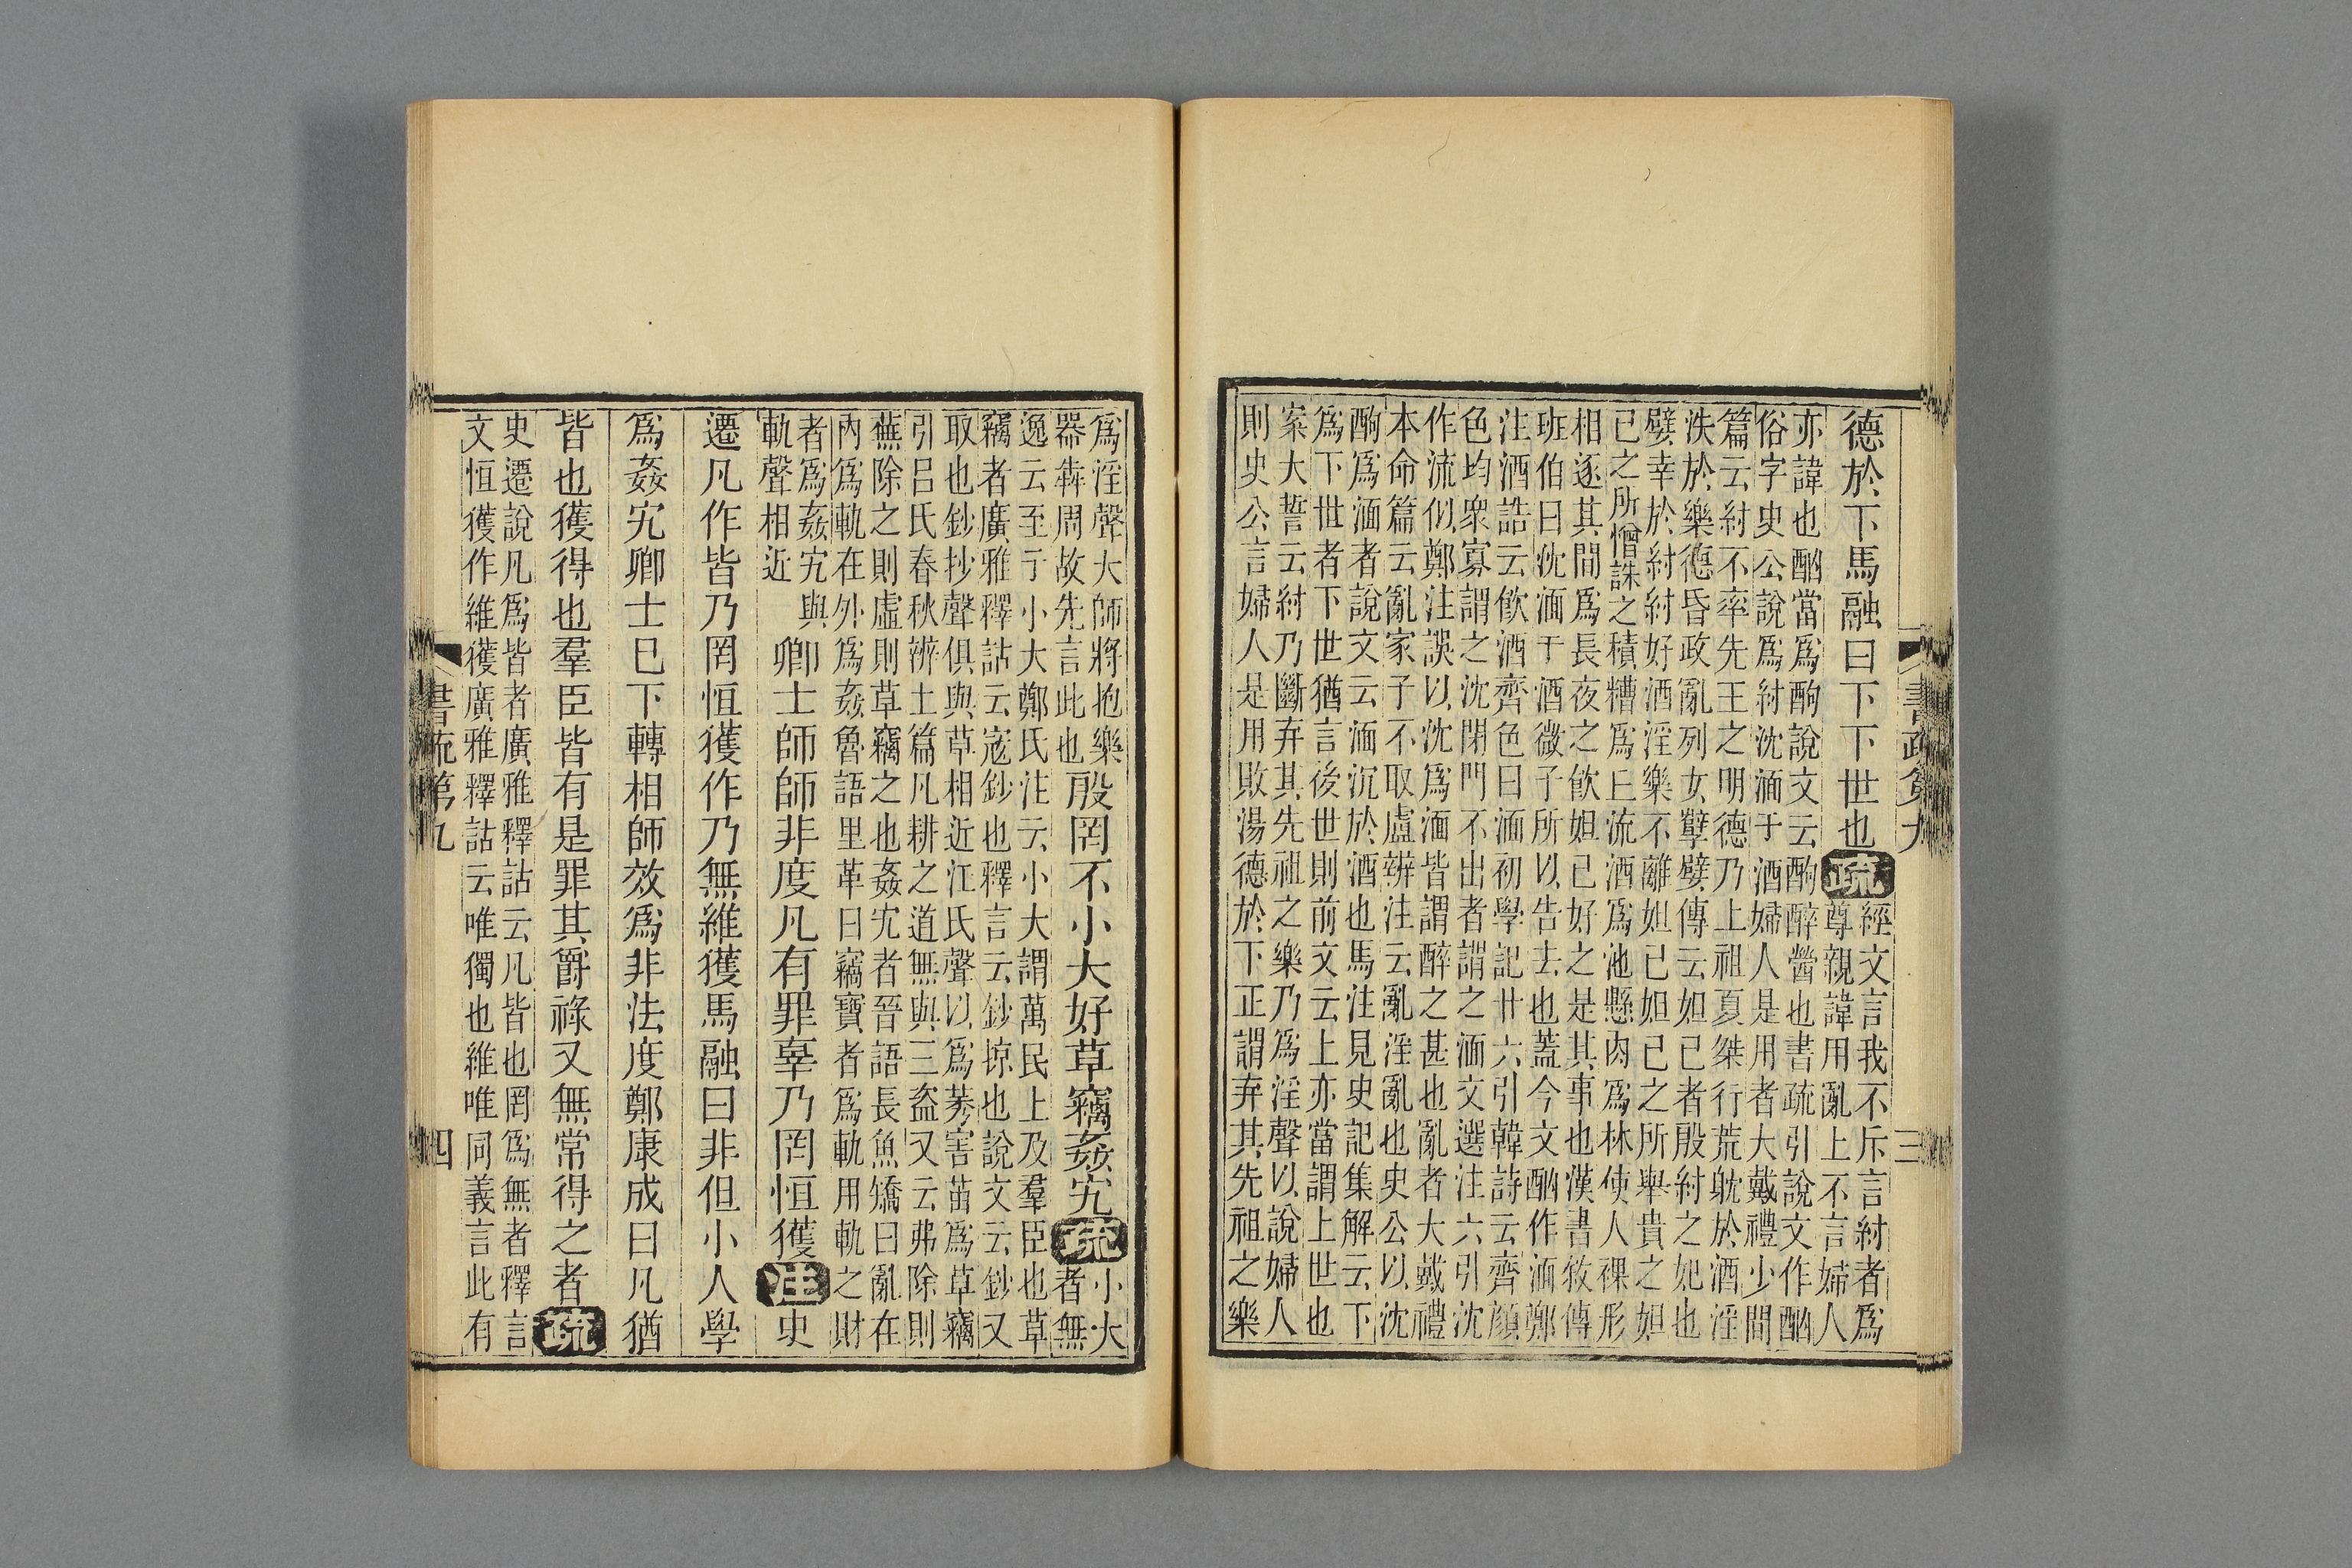 書疏第九
三
德於下馬融曰下下世也疏
經文言我不斥言紂者爲
尊親諱用亂上不言婦人
亦諱也酗當爲酌說文云酌醉醟也書疏引說文作酗
俗字史公說爲紂沈湎于酒婦人是用者大戴禮少間
篇云紂不率先王之明德乃上祖夏桀行荒躭於酒淫
泆於樂德昏政亂列女孽嬖傳云妲己者殷紂之妃也
嬖幸於紂紂好酒淫樂不離妲己妲己之所舉貴之妲
己之所憎誅之積糟爲丘流酒爲池懸肉爲林使人裸形
相逐其間爲長夜之飲妲己好之是其事也漢書敘傳
班伯曰沈湎于酒微子所以告去也蓋今文酗作湎鄭
注酒誥云飲酒齊色曰湎初學記廿六引韓詩云齊顏
色均衆寡謂之沈閉門不出者謂之湎文選注六引沈
作流似鄭注誤以沈爲湎皆謂醉之甚也亂者大戴禮
本命篇云亂家子不取盧辨注云亂淫亂也史公以沈
酌爲湎者說文云湎沉於酒也馬注見史記集解云下
爲下世者下世猶言後世則前文云上亦當謂上世也
案大誓云紂乃斷弃其先祖之樂乃爲淫聲以說婦人
則史公言婦人是用敗湯德於下正謂弃其先祖之樂
爲淫聲大師將抱樂
器犇周故先言此也
殷罔不小大好草竊姦宄疏
小大
者無
逸云至于小大鄭氏注云小大謂萬民上及羣臣也草
竊者廣雅釋詁云寇鈔也釋言云鈔掠也說文云鈔又
取也鈔抄聲俱與草相近江氏聲以爲莠害苗爲草竊
引呂氏春秋辨土篇凡耕之道無與三盜又云弗除則
蕪除之則虛則草竊之也姦宄者晉語長魚矯曰亂在
內爲軌在外爲姦魯語里革曰竊寶者爲軌用軌之財
者爲姦宄與
軌聲相近
卿士師師非度凡有罪辜乃罔恒獲注史
遷凡作皆乃罔恒獲作乃無維獲馬融曰非但小人學
爲姦宄卿士巳下轉相師效爲非法度鄭康成曰凡猶
皆也獲得也羣臣皆有是罪其爵祿又無常得之者疏
史遷說凡爲皆者廣雅釋詁云凡皆也罔爲無者釋言
文恒獲作維獲廣雅釋詁云唯獨也維唯同義言此有
書疏第九
四